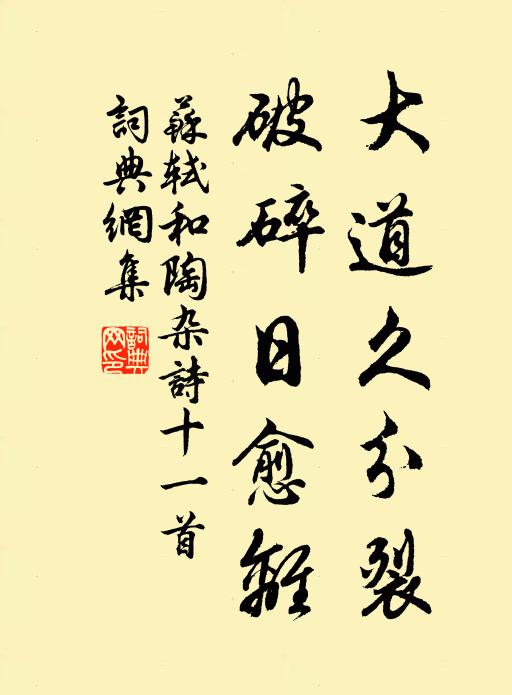 大道久分裂
破碎日愈離
蘇軾和陶杂詩十一首
詞典網集
詞典网印